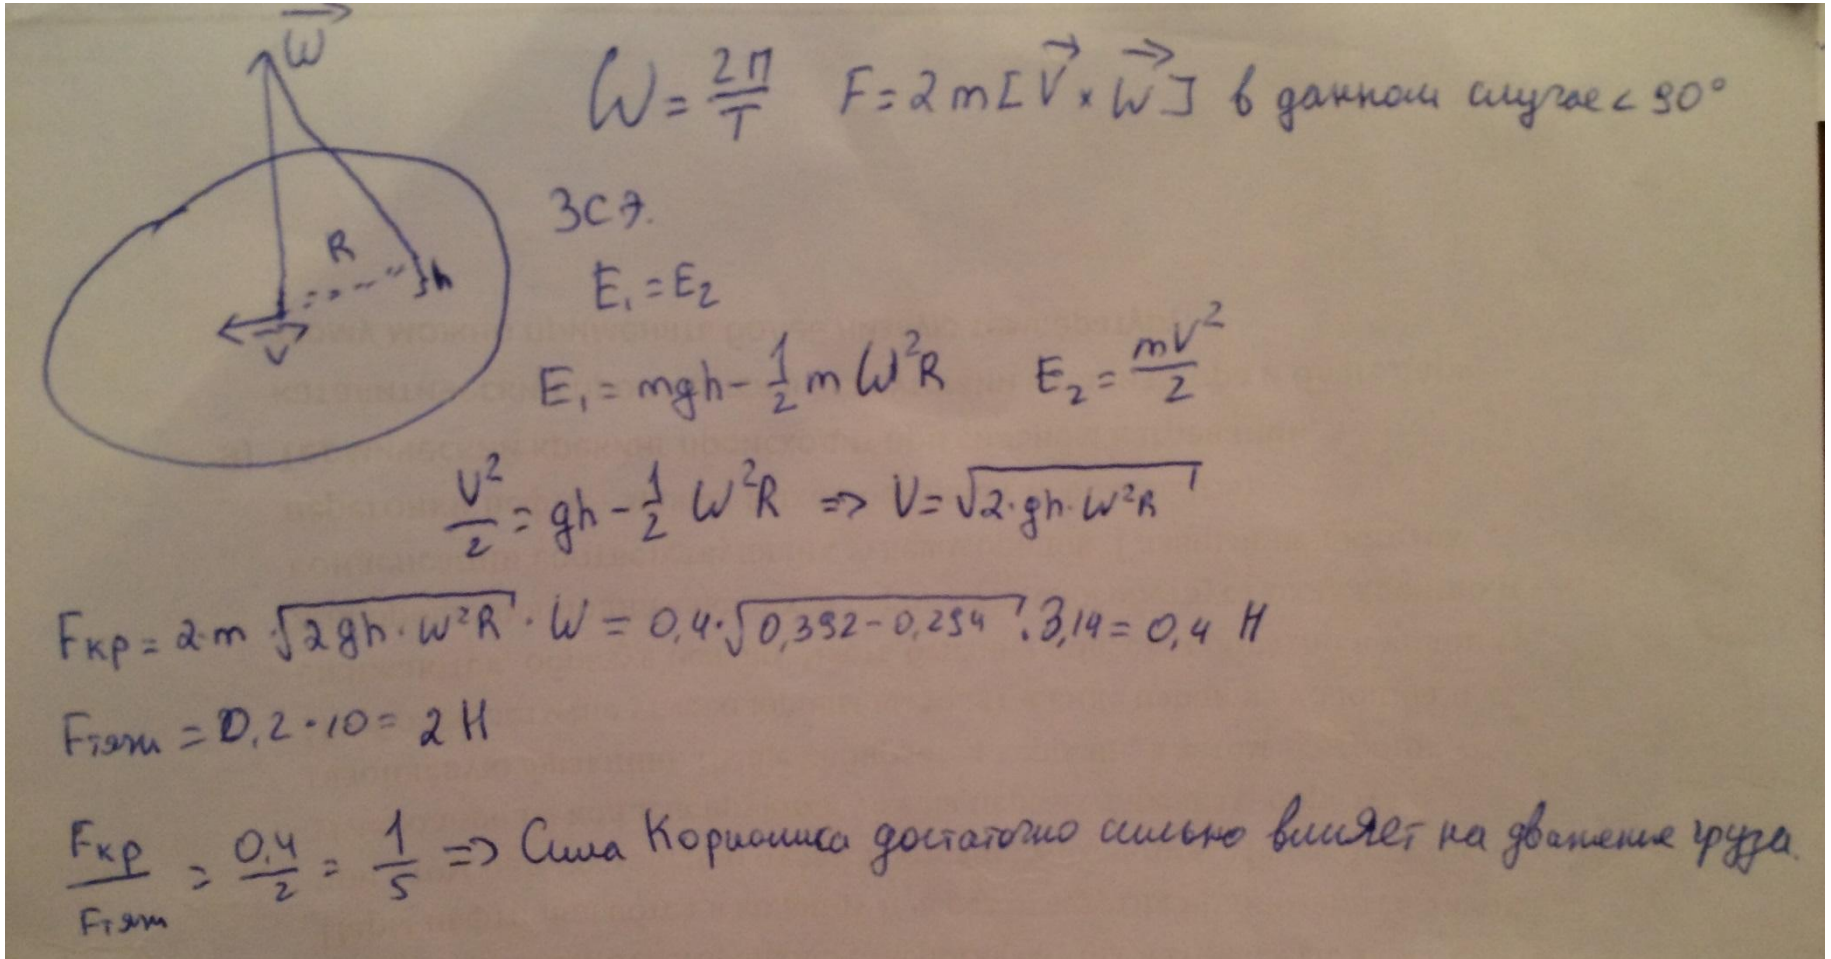 W
W = 2П/T F = 2m[V × W] в данном случае < 90°
ЗСЭ.
R
h
V
E₁ = E₂
E₁ = mgh - 1/2 m W²R E₂ = mV²/2
V²/2 = gh - 1/2 W²R => V = √2·gh·W²R
Fкр = 2·m·√2gh·W²R · W = 0,4·√0,392-0,294 · 3,14 = 0,4 Н
Fтяж = 0,2·10 = 2 Н
Fкр/Fтяж = 0,4/2 = 1/5 => Сила Кориолиса достаточно сильно влияет на движение груза.